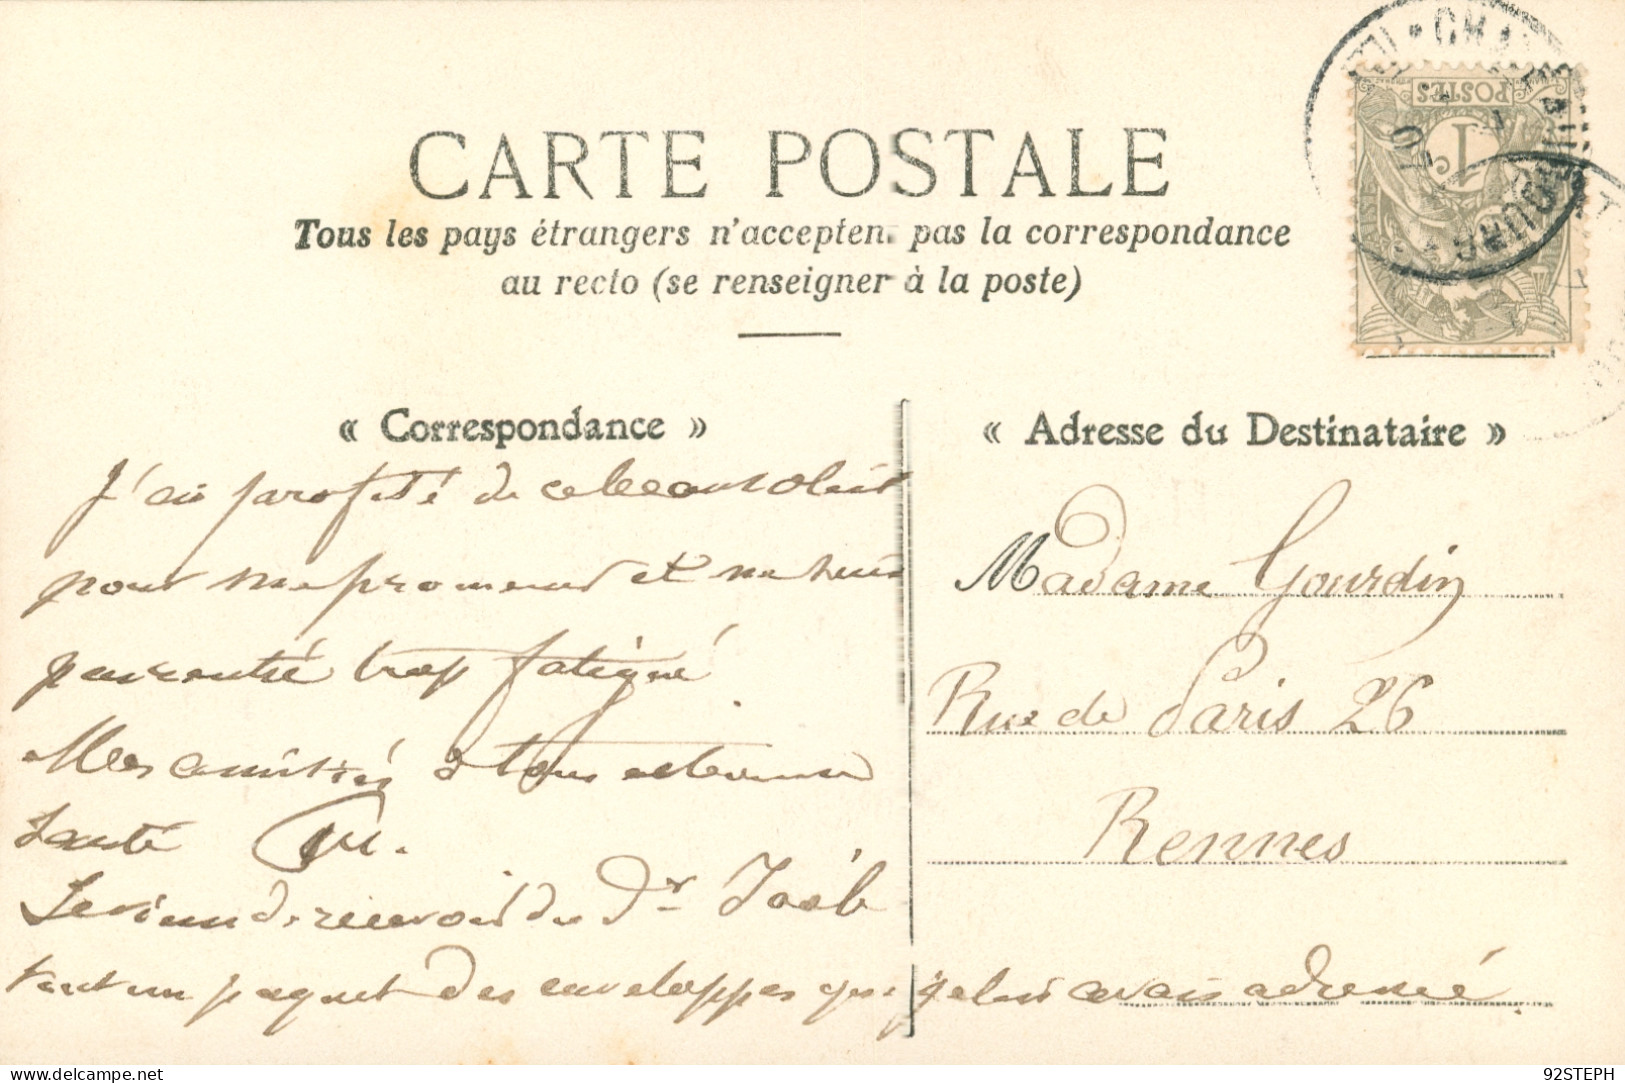 CARTE POSTALE
Tous les pays étrangers n'accepten. pas la correspondance
au recto (se renseigner à la poste)
POSTES
1
« Correspondance »
« Adresse du Destinataire »
j'ai profité de ce beau soleil
pour me promener et ne suis
pas rentré trop fatigué
Mes amitiés à tous et bonne
santé
Je viens de recevoir du Dr
tout un paquet des enveloppes que je lui avais adressé.
Madame Gourdin
Rue de Paris 26
Rennes
delcampe.net
92STEPH